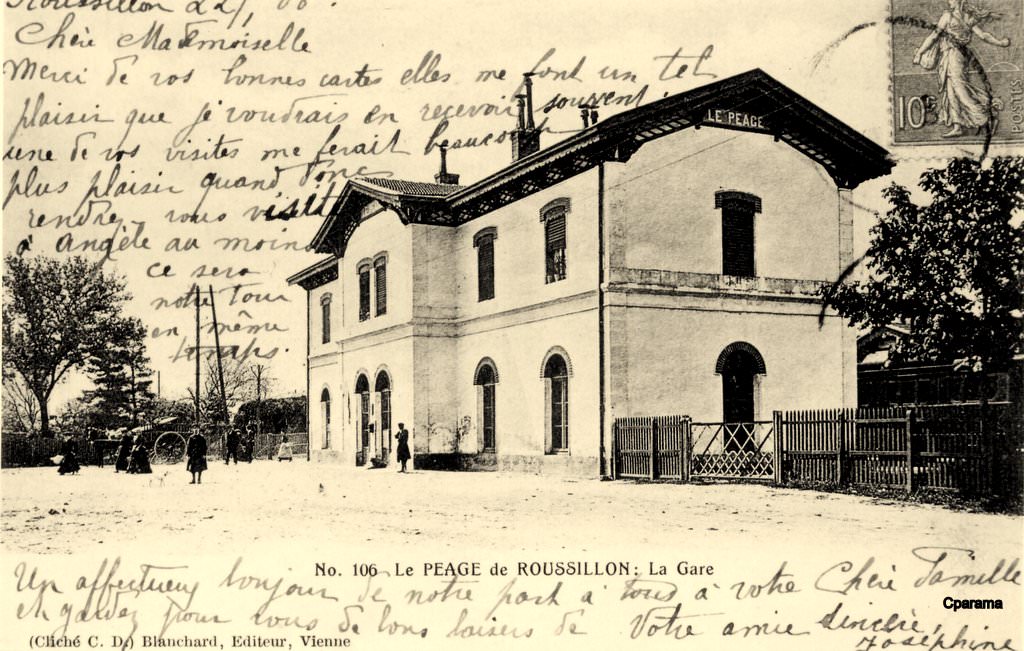 Roussillon 22/
Chère Mademoiselle
Merci de vos bonnes cartes elles me font un tel
plaisir que je voudrais en recevoir souvent.
une de vos visites me ferait beaucoup
plus plaisir quand donc
rendrez-vous visite
à Angèle au moins
ce sera
notre tour
en même
temps.
LE PEAGE
10c
POSTES
No. 106 Le PEAGE de ROUSSILLON: La Gare
Un affectueux bonjour de notre part à tous à votre Chère famille
et gardez pour vous de bons baisers de Votre amie sincère,
Joséphine
Cparama
(Cliché C. D.) Blanchard, Editeur, Vienne